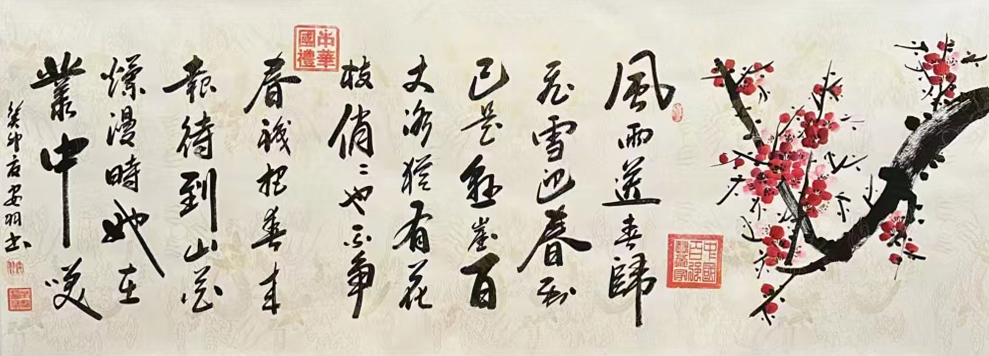 風雨送春歸
飛雪迎春到
已是懸崖百
丈冰猶有花
枝俏〻也不争
春祇把春来
報待到山花
爛漫時她在
叢中咲
癸卯夏安羽书
中華國禮